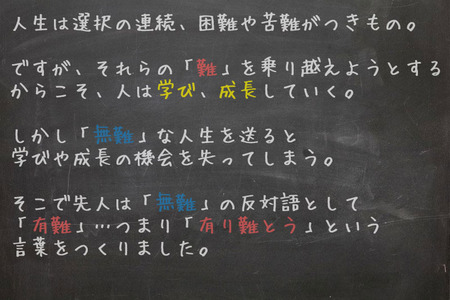 人生は選択の連続、困難や苦難がつきもの。
ですが、それらの「難」を乗り越えようとする
からこそ、人は学び、成長していく。
しかし「無難」な人生を送ると
学びや成長の機会を失ってしまう。
そこで先人は「無難」の反対語として
「有難」…つまり「有り難とう」という
言葉をつくりました。